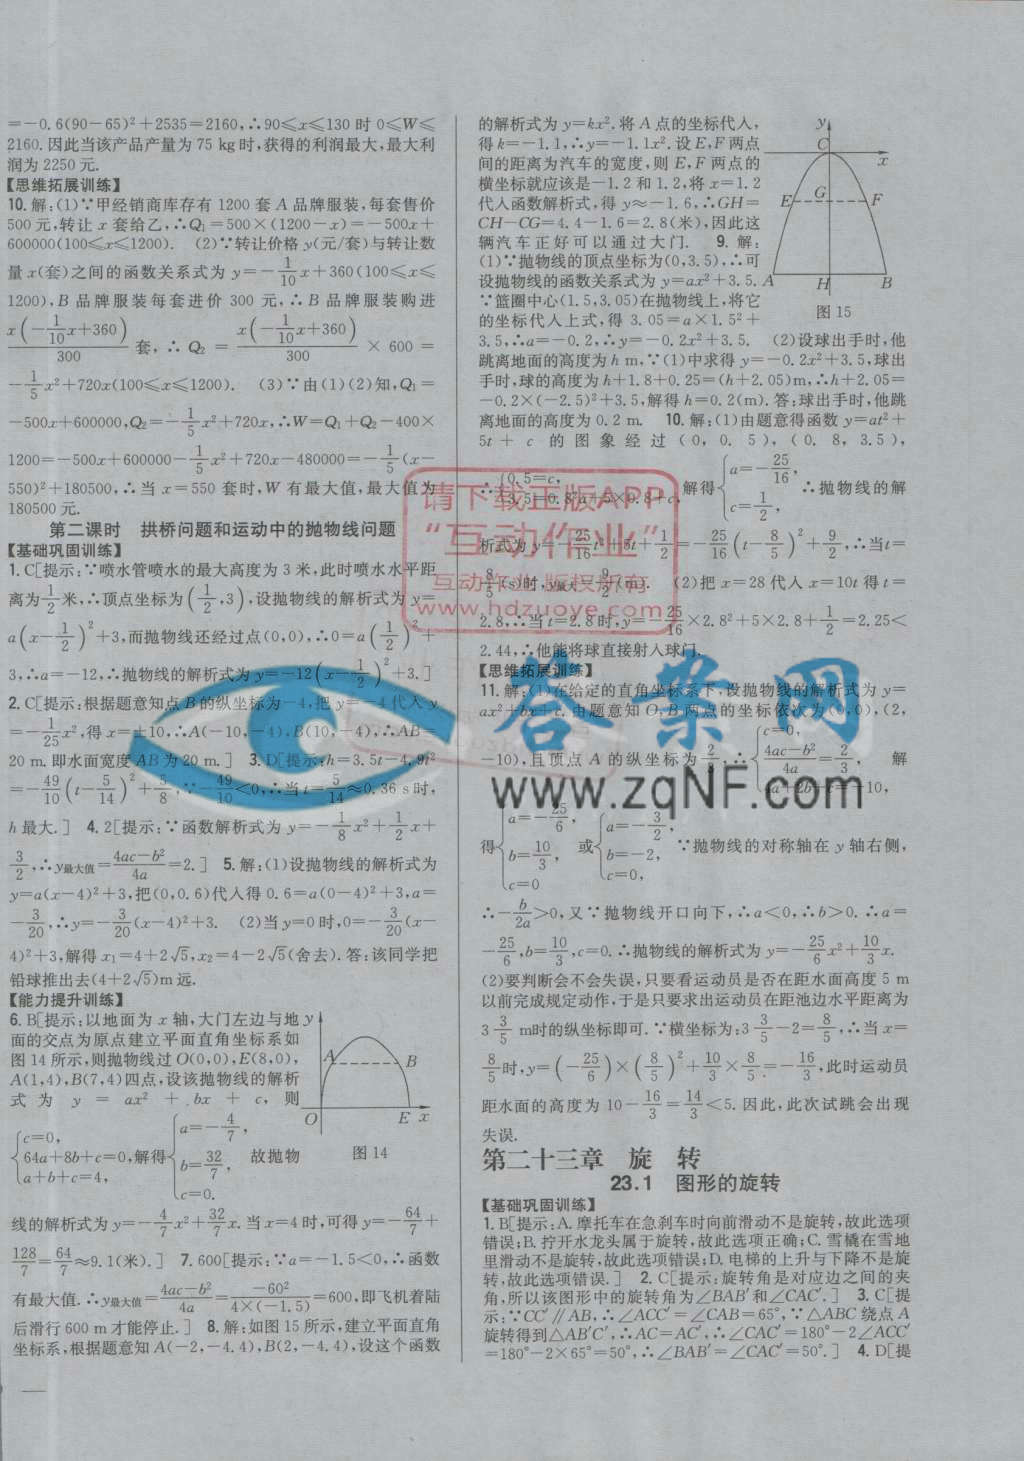 =-0.6(90-65)²+2535=2160,∴90≤x≤130 时 0≤W≤
2160. 因此当该产品产量为 75 kg 时,获得的利润最大,最大利
润为 2250 元.
【思维拓展训练】
10. 解:(1)∵甲经销商库存有 1200 套 A 品牌服装,每套售价
500 元,转让 x 套给乙,∴Q₁=500×(1200-x)=-500x+
600000(100≤x≤1200). (2)∵转让价格 y(元/套)与转让数
量 x(套)之间的函数关系式为 y=-1/10x+360(100≤x≤
1200),B 品牌服装每套进价 300 元,∴B 品牌服装购进
x(-1/10x+360)/300 套,∴Q₂=x(-1/10x+360)/300×600=
-1/5x²+720x(100≤x≤1200). (3)∵由(1)(2)知,Q₁=
-500x+600000,Q₂=-1/5x²+720x,∴W=Q₁+Q₂-400×
1200=-500x+600000-1/5x²+720x-480000=-1/5(x-
550)²+180500,∴当 x=550 套时,W 有最大值,最大值为
180500 元.
第二课时 拱桥问题和运动中的抛物线问题
【基础巩固训练】
1. C[提示:∵喷水管喷水的最大高度为 3 米,此时喷水水平距
离为1/2米,∴顶点坐标为(1/2,3),设抛物线的解析式为 y=
a(x-1/2)²+3,而抛物线还经过点(0,0),∴0=a(1/2)²+
3,∴a=-12,∴抛物线的解析式为 y=-12(x-1/2)²+3.]
2. C[提示:根据题意知点 B 的纵坐标为-4,把 y=-4 代入 y
=-1/25x²,得 x=±10,∴A(-10,-4),B(10,-4),∴AB=
20 m. 即水面宽度 AB 为 20 m.] 3. D[提示:h=3.5t-4.9t²
=-49/10(t-5/14)²+5/8,∵-49/10<0,∴当 t=5/14≈0.36 s 时,
h 最大.] 4. 2[提示:∵函数解析式为 y=-1/8x²+1/2x+
3/2,∴y最大值=(4ac-b²)/4a=2.] 5. 解:(1)设抛物线的解析式为
y=a(x-4)²+3,把(0,0.6)代入得 0.6=a(0-4)²+3,a=
-3/20,∴y=-3/20(x-4)²+3. (2)当 y=0 时,0=-3/20(x-
4)²+3,解得 x₁=4+2√5,x₂=4-2√5(舍去). 答:该同学把
铅球推出去(4+2√5)m 远.
【能力提升训练】
6. B[提示:以地面为 x 轴,大门左边与地
面的交点为原点建立平面直角坐标系如
图 14 所示,则抛物线过 O(0,0),E(8,0),
A(1,4),B(7,4)四点,设该抛物线的解析
式为 y=ax²+bx+c,则
{c=0, 64a+8b+c=0, a+b+c=4, 解得{a=-4/7, b=32/7, c=0. 故抛物
y
A
B
O
E
x
图 14
线的解析式为 y=-4/7x²+32/7x. 当 x=4 时,可得 y=-64/7+
128/7=64/7≈9.1(米).] 7. 600[提示:∵a=-1.5<0,∴函数
有最大值. ∴y最大值=(4ac-b²)/4a=-60²/(4×(-1.5))=600,即飞机着陆
后滑行 600 m 才能停止.] 8. 解:如图 15 所示,建立平面直角
坐标系,根据题意知 A(-2,-4.4),B(2,-4.4),设这个函数
的解析式为 y=kx². 将 A 点的坐标代入,
得 k=-1.1,∴y=-1.1x². 设 E,F 两点
间的距离为汽车的宽度,则 E,F 两点的
横坐标就应该是-1.2 和 1.2,将 x=1.2
代入函数解析式,得 y≈-1.6,∴GH=
CH-CG=4.4-1.6=2.8(米),因此这
辆汽车正好可以通过大门. 9. 解:
(1)∵抛物线的顶点坐标为(0,3.5),∴可
设抛物线的函数关系式为 y=ax²+3.5.
∵篮圈中心(1.5,3.05)在抛物线上,将它
的坐标代入上式,得 3.05=a×1.5²+
y
C
x
E
G
F
A
H
B
图 15
3.5,∴a=-0.2,∴y=-0.2x²+3.5. (2)设球出手时,他
跳离地面的高度为 h m,∵(1)中求得 y=-0.2x²+3.5,球出
手时,球的高度为 h+1.8+0.25=(h+2.05)m,∴h+2.05=
-0.2×(-2.5)²+3.5,解得 h=0.2(m). 答:球出手时,他跳
离地面的高度为 0.2 m. 10. 解:(1)由题意得函数 y=at²+
5t+c 的图象经过(0,0.5),(0.8,3.5),
∴{0.5=c, 3.5=0.8²a+5×0.8+c, 解得{a=-25/16, c=1/2, ∴抛物线的解
析式为 y=-25/16t²+5t+1/2=-25/16(t-8/5)²+9/2,∴当 t=
8/5(s)时,y最大=9/2(m). (2)把 x=28 代入 x=10t 得 t=
2.8,∴当 t=2.8 时,y=-25/16×2.8²+5×2.8+1/2=2.25<
2.44,∴他能将球直接射入球门.
【思维拓展训练】
11. 解:(1)在给定的直角坐标系下,设抛物线的解析式为 y=
ax²+bx+c. 由题意知 O,B 两点的坐标依次为(0,0),(2,
-10),且顶点 A 的纵坐标为2/3,∴{c=0, (4ac-b²)/4a=2/3, 4a+2b+c=-10, 解
得{a=-25/6, b=10/3, c=0 或{a=-3/2, b=-2, c=0, ∵抛物线的对称轴在 y 轴右侧,
∴-b/2a>0,又∵抛物线开口向下,∴a<0,∴b>0. ∴a=
-25/6,b=10/3,c=0. ∴抛物线的解析式为 y=-25/6x²+10/3x.
(2)要判断会不会失误,只要看运动员是否在距水面高度 5 m
以前完成规定动作,于是只要求出运动员在距池边水平距离为
3 3/5 m时的纵坐标即可. ∵横坐标为:3 3/5-2=8/5,∴当 x=
8/5时,y=(-25/6)×(8/5)²+10/3×8/5=-16/3,此时运动员
距水面的高度为 10-16/3=14/3<5. 因此,此次试跳会出现
失误.
第二十三章 旋 转
23.1 图形的旋转
【基础巩固训练】
1. B[提示:A. 摩托车在急刹车时向前滑动不是旋转,故此选项
错误;B. 拧开水龙头属于旋转,故此选项正确;C. 雪橇在雪地
里滑动不是旋转,故此选项错误;D. 电梯的上升与下降不是旋
转,故此选项错误.] 2. C[提示:旋转角是对应边之间的夹
角,所以该图形中的旋转角为∠BAB′和∠CAC′.] 3. C[提
示:∵CC′∥AB,∴∠ACC′=∠CAB=65°,∵△ABC 绕点 A
旋转得到△AB′C′,∴AC=AC′,∴∠CAC′=180°-2∠ACC′
=180°-2×65°=50°,∴∠BAB′=∠CAC′=50°.] 4. D[提
请下载正版APP
“互动作业”
互动作业 版权所有
www.hdzuoye.com
答案网
www.zqNF.com